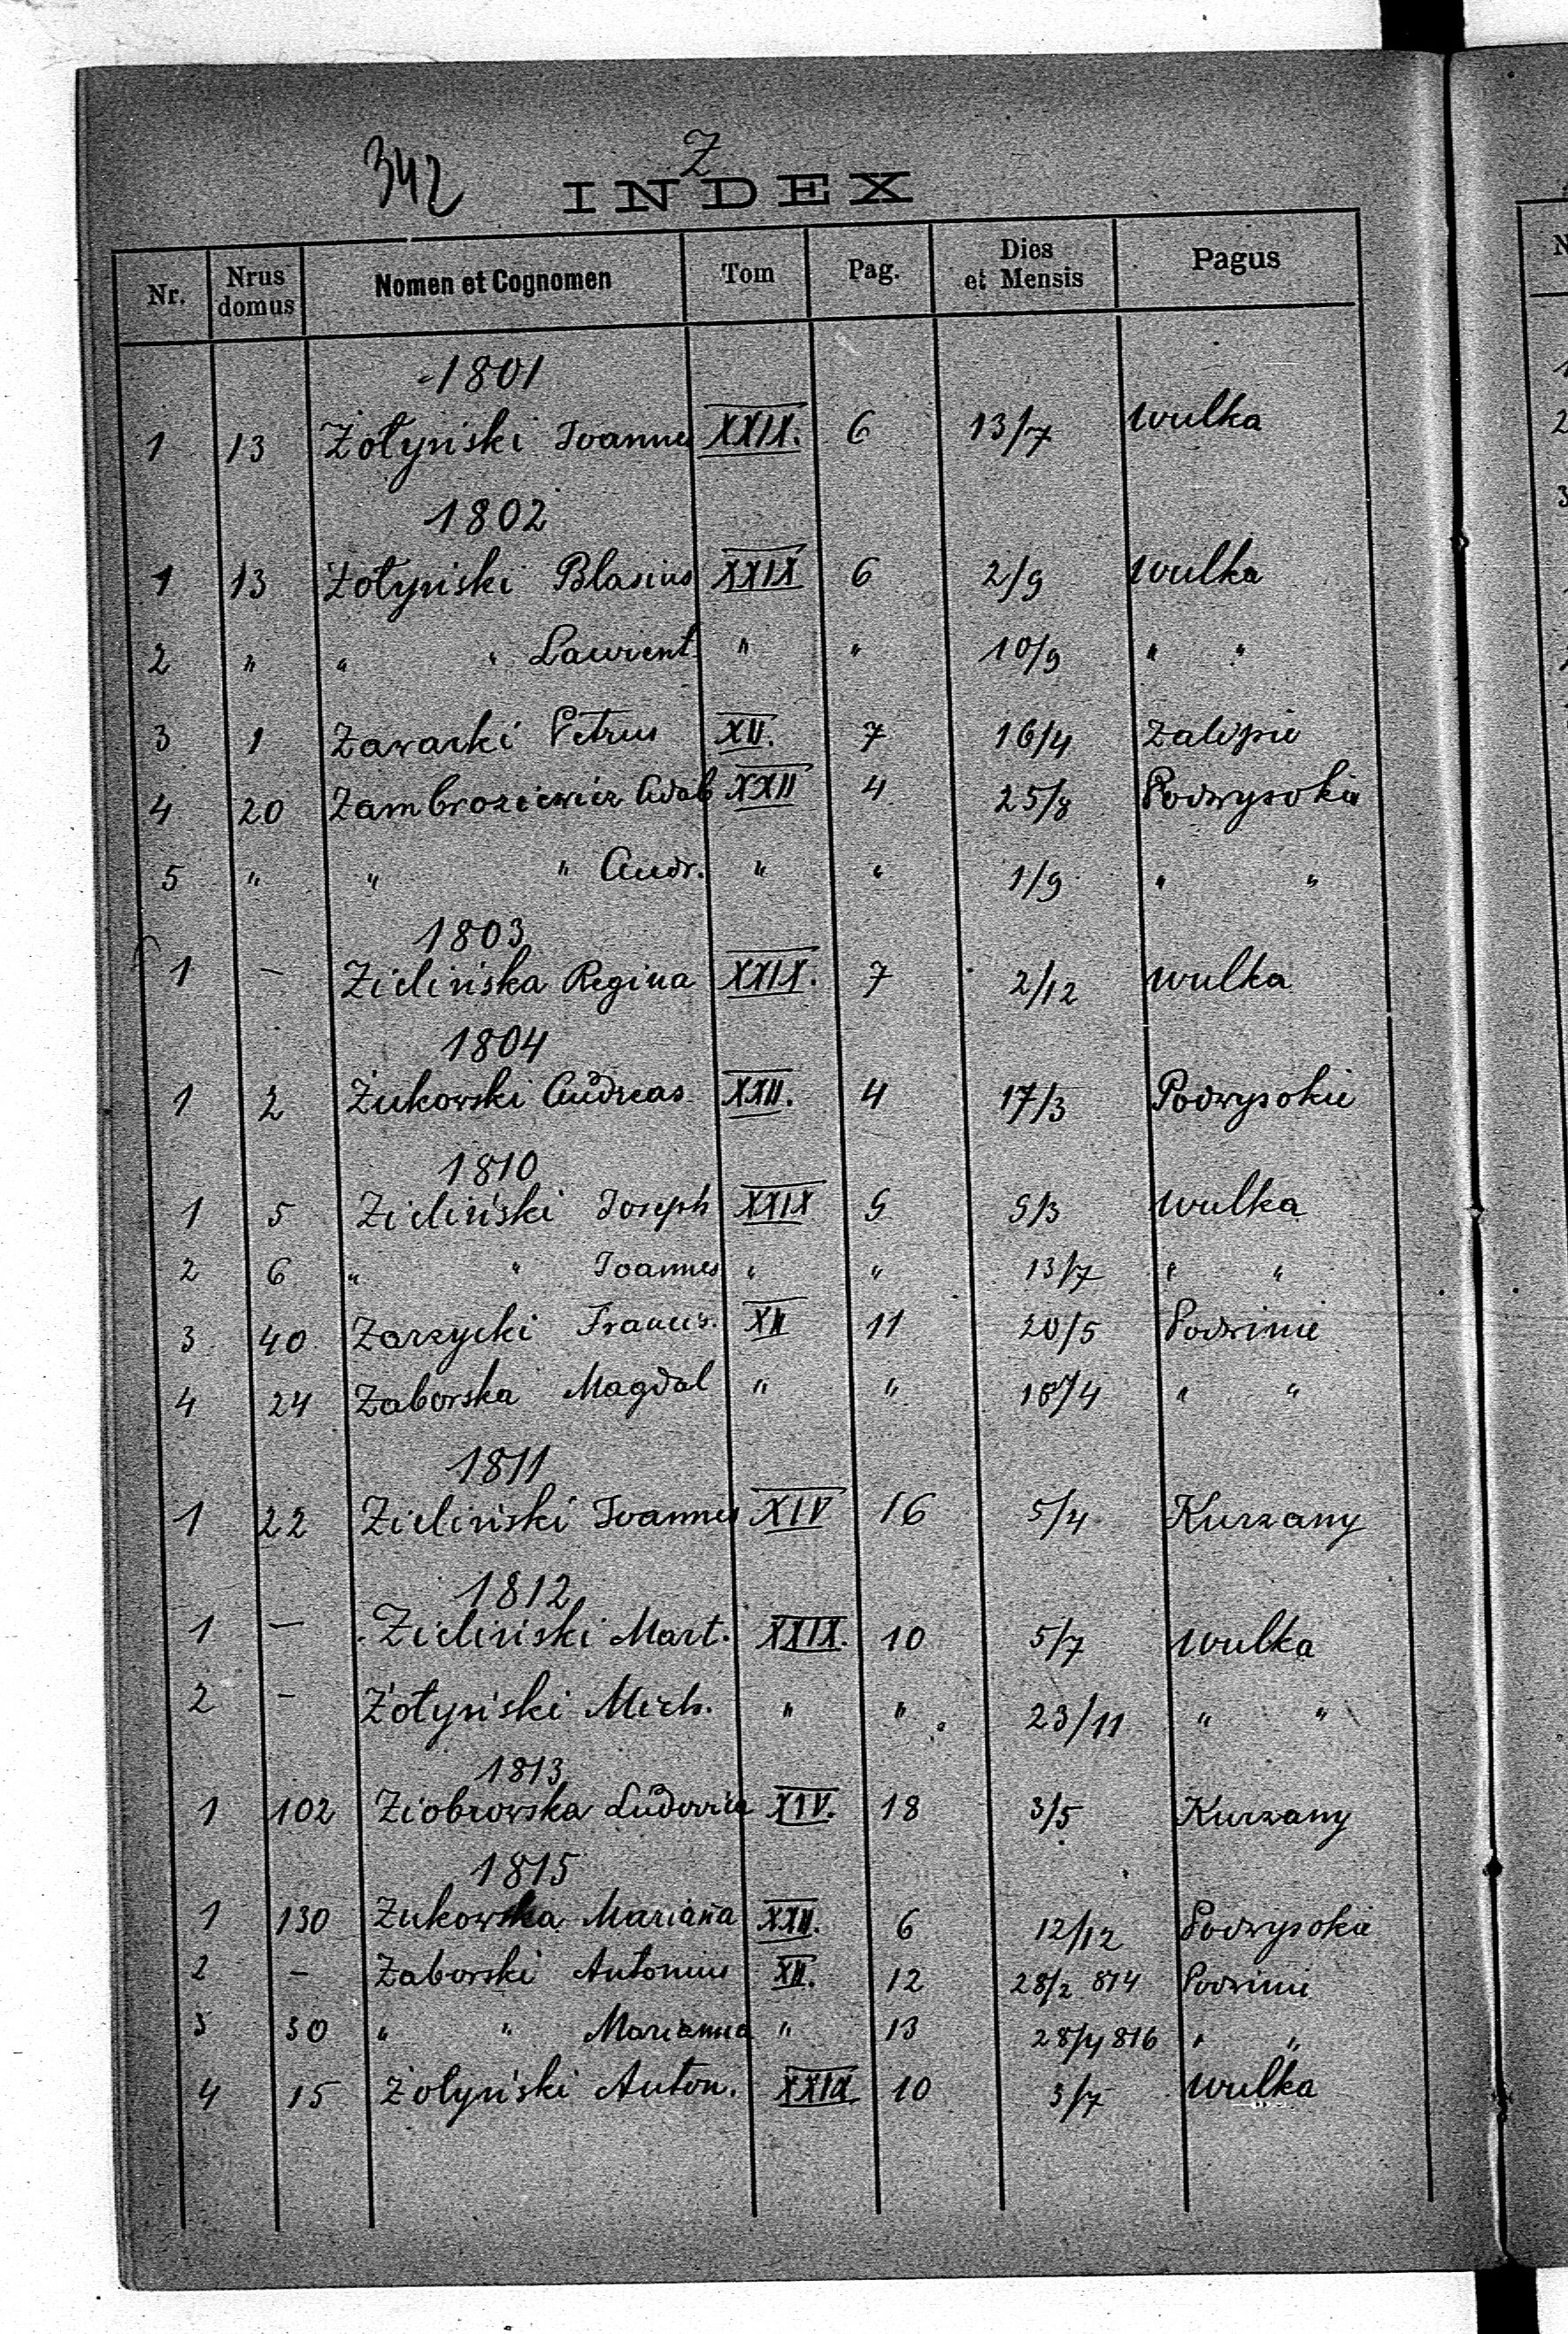 342 Z
INDEX
Nr. Nrus domus Nomen et Cognomen Tom Pag. Dies et Mensis Pagus
1801
1 13 Żołyński Joannes XXIX. 6 13/7 Wulka
1802
1 13 Żołyński Blasius XXIX 6 2/9 Wulka
2 " " " Laurent " " 10/9 " "
3 1 Zawarki Petrus XV. 7 16/4 Zalipie
4 20 Zambroziewicz Adalb XXII 4 25/8 Podwysokie
5 " " " Andr. " " 1/9 " "
1803
1 — Zielińska Regina XXIX. 7 2/12 Wulka
1804
1 2 Żukowski Andreas XXII. 4 17/3 Podwysokie
1810
1 5 Zieliński Joseph XXIX 9 9/3 Wulka
2 6 " " Joannes " " 13/7 " "
3 40 Zarzycki Francis. XII 11 20/5 Podwinie
4 24 Zaborska Magdal " " 18/4 " "
1811
1 22 Zieliński Joannes XIV 16 5/4 Kurzany
1812
1 — Zieliński Mart. XXIX. 10 5/7 Wulka
2 — Żołyński Mich. " " 23/11 " "
1813
1 102 Ziobrowska Ludovica XIV. 18 3/5 Kurzany
1815
1 130 Żukowska Mariana XXII. 6 12/12 Podwysokie
2 — Zaborski Antonius XII. 12 28/2 814 Podwinie
3 30 " " Marianna " 13 28/4 816 " "
4 15 Żołyński Anton. XXIX 10 3/7 Wulka
N
1
2
3